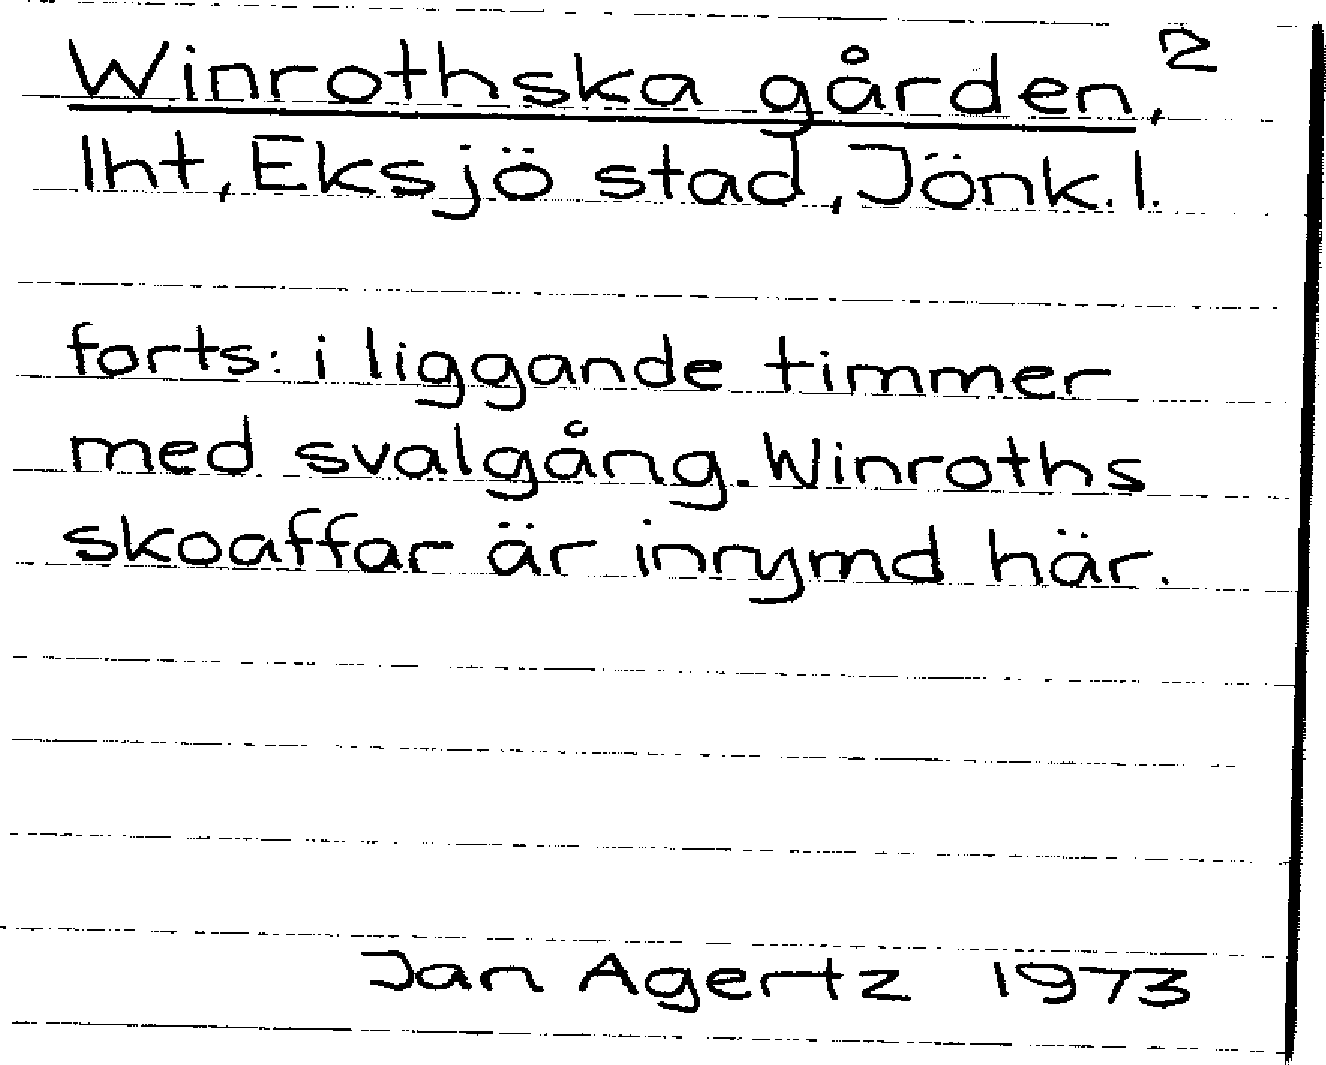 Winrothska gården, 2
lht, Eksjö stad, Jönk. l.
forts: i liggande timmer
med svalgång. Winroths
skoaffar är inrymd här.
Jan Agertz 1973